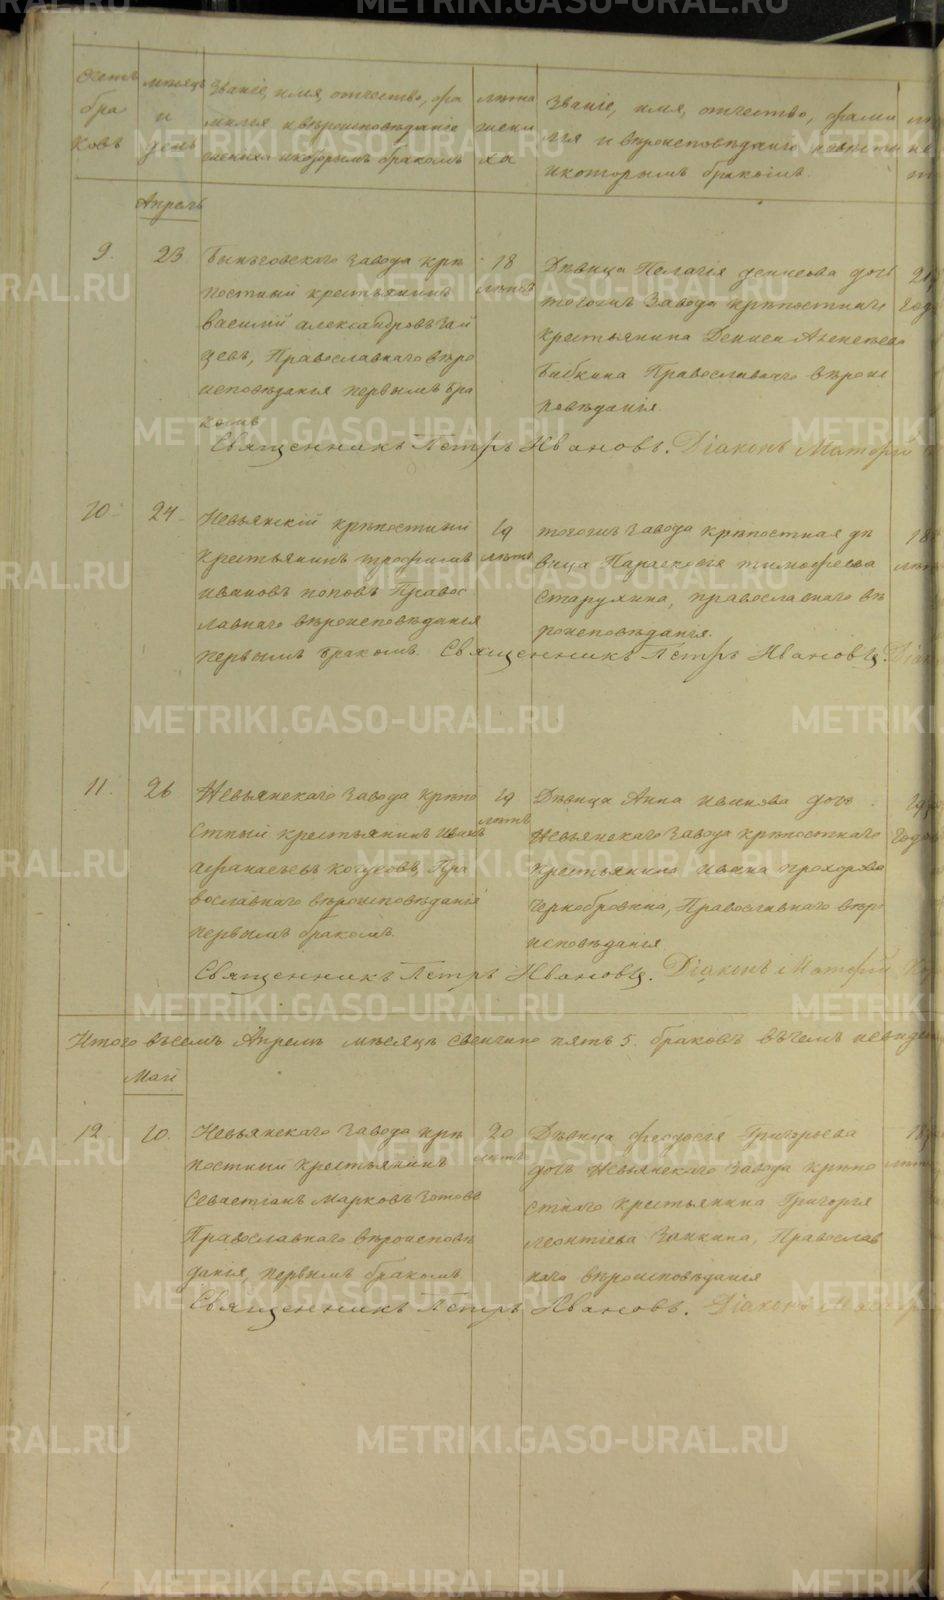 Счетъ бра ковъ
мѣсяцъ и день
Званіе, имя, отчество, фа
милія и вѣроисповѣданіе
жениха и которымъ бракомъ
лѣта жени ха
Званіе, имя, отчество, фами
лія и вѣроисповѣданіе невѣсты
и которымъ бракомъ.
Апрель
9. 23
Быньговскаго завода крѣ
постный крестьянинъ
василій александровъ Зай
цевъ, Православнаго вѣро
исповѣданія первымъ бра
комъ
18 лѣтъ
Дѣвица Пелагія денисова дочь
тогожъ Завода крѣпостнаго
крестьянина Дениса
Бабкина Православнаго вѣроис
повѣданія.
Священникъ Петръ Ивановъ. Діаконъ Матфій
10. 24
Невьянскій крѣпостный
крестьянинъ трофимъ
ивановъ поповъ Правос
лавнаго вѣроисповѣданія
первымъ бракомъ.
19 лѣтъ
тогожъ завода крѣпостная дѣ
вица Парасковія тимофеева
Старухина, православнаго вѣ
роисповѣданія.
18
Священникъ Петръ Ивановъ.
11. 26
Невьянскаго завода крѣпо
стный крестьянинъ Иванъ
афанасьевъ Пра
вославнаго вѣроисповѣданія
первымъ бракомъ.
19 лѣтъ
Дѣвица Анна иванова дочь
Невьянскаго завода крѣпостнаго
крестьянина ивана прохорова
Чернобровина, Православнаго вѣро
исповѣданія
19 годовъ
Священникъ Петръ Ивановъ. Діаконъ Матфій
Итого въ семъ Апрелѣ мѣсяцѣ свенчано пять 5. браковъ въ чемъ
Май
12 10.
Невьянскаго завода крѣ
постный крестьянинъ
Севастіанъ марковъ
Православнаго вѣроисповѣ
данія, первымъ бракомъ
20 лѣтъ
Дѣвица феодосія Григорьева
дочь Невьянскаго завода крѣпо
стнаго крестьянина Григорія
леонтіева Заикина, Православ
наго вѣроисповѣданія
18
Священникъ Петръ Ивановъ. Діаконъ
METRIKI.GASO-URAL.RU